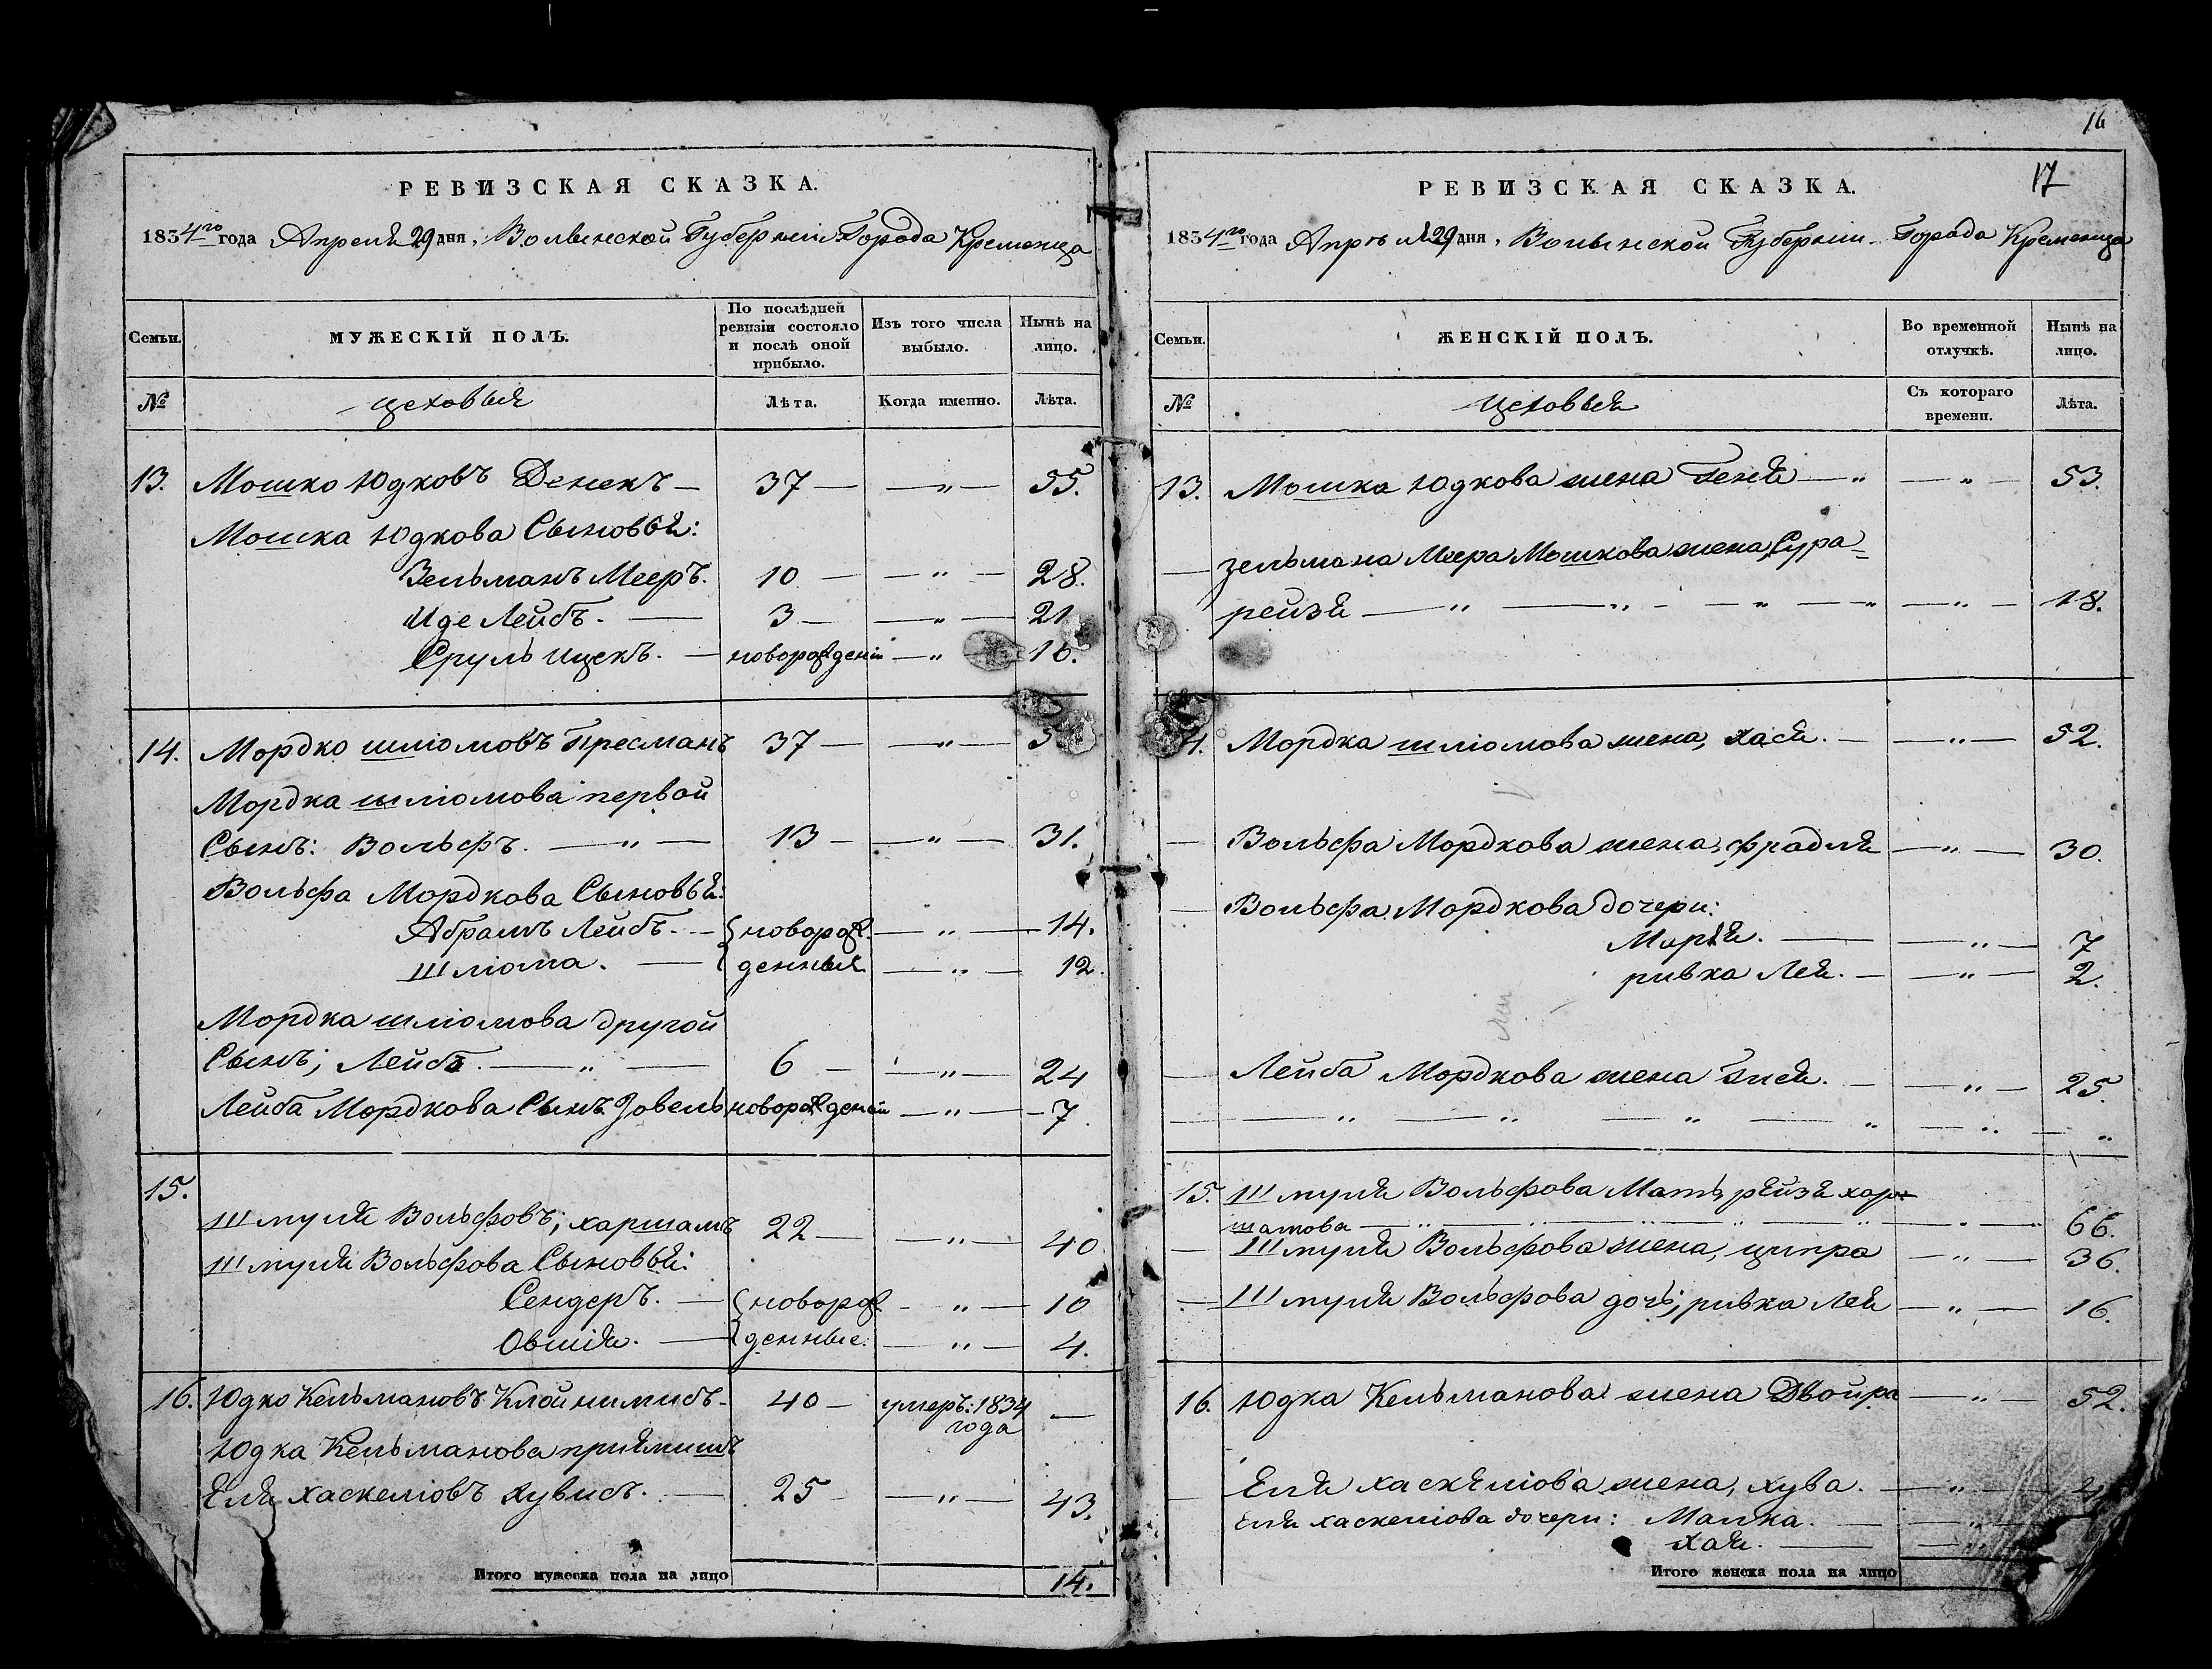 РЕВИЗСКАЯ СКАЗКА.
1834го года Апреля 29 дня, Волынской Губерніи Города Кременца
Семьи.
МУЖЕСКІЙ ПОЛЪ.
По послѣдней ревизіи состояло и послѣ оной прибыло.
Изъ того числа выбыло.
Нынѣ на лицо.
№
цеховыя
Лѣта.
Когда именно.
Лѣта.
13. Мошко Юдковъ Денекъ — 37 — — „ — 55.
Мошка Юдкова Сыновья:
Зельманъ Мееръ. 10 — — „ — 28.
Иде Лейбъ. — 3 — — „ — 21
Сруль ицекъ. — новорожденій — „
14. Мордко шліомовъ Пресманъ 37 — — „ —
Мордка шліомова первой
Сынъ: Вольфъ. — „ — 13 — — „ — 31.
Вольфа Мордкова Сыновья:
Абрамъ Лейбъ. — новорож — „ — 14.
Шліома. — денныя — „ — 12.
Мордка шліомова другой
Сынъ; Лейбъ. — „ — 6 — — „ — 24
Лейба Мордкова Сынъ Іовель новорожденій — „ — 7.
15.
Шмуля Вольфовъ; харшамъ 22 — — „ — 40
Шмуля Вольфова Сыновья:
Сендеръ. — новорож — „ — 10
Овшія. — денные: — „ — 4.
16. Юдко Кельмановъ 40 — умеръ: 1834 —
года
Юдка Кельманова пріямишъ
Еля хаскеліовъ хувисъ. — 25 — — „ — 43.
Итого мужеска пола на лицо 14.
16
17
РЕВИЗСКАЯ СКАЗКА.
1834го года Апрѣля 29 дня, Волынской Губерніи Города Кременца
Семьи.
ЖЕНСКІЙ ПОЛЪ.
Во временной отлучкѣ.
Нынѣ на лицо.
№
цеховыя
Съ котораго времени.
Лѣта.
13. Мошка Юдкова жена Геня — „ — „ — 53.
— зельмана Меера Мошкова жена, Сура=
рейзя — „ — „ — „ — „ — „ — 18.
Мордка шліомова жена, хася. — — „ — 52.
— Вольфа Мордкова жена, фрадля — „ — 30.
— Вольфа Мордкова дочери:
Маря. — — „ — 7
ривка Лея. — — „ — 2.
— Лейба Мордкова жена Гися. — — „ — 25.
— — „ — „ — „ — „ — „ — „
15. Шмуля Вольфова Мать, рейзя хар=
шамова — „ — „ — „ — „ — „ — 66.
— Шмуля Вольфова жена, ципра — „ — 36.
— Шмуля Вольфова дочь; ривка Лея — „ — 16.
16. Юдка Кельманова жена Двойра — „ — 52.
— Еля хаскеліова жена, хува. — „ —
Еля хаскеліова дочери: Малка. — — „
Хая. —
Итого женска пола на лицо